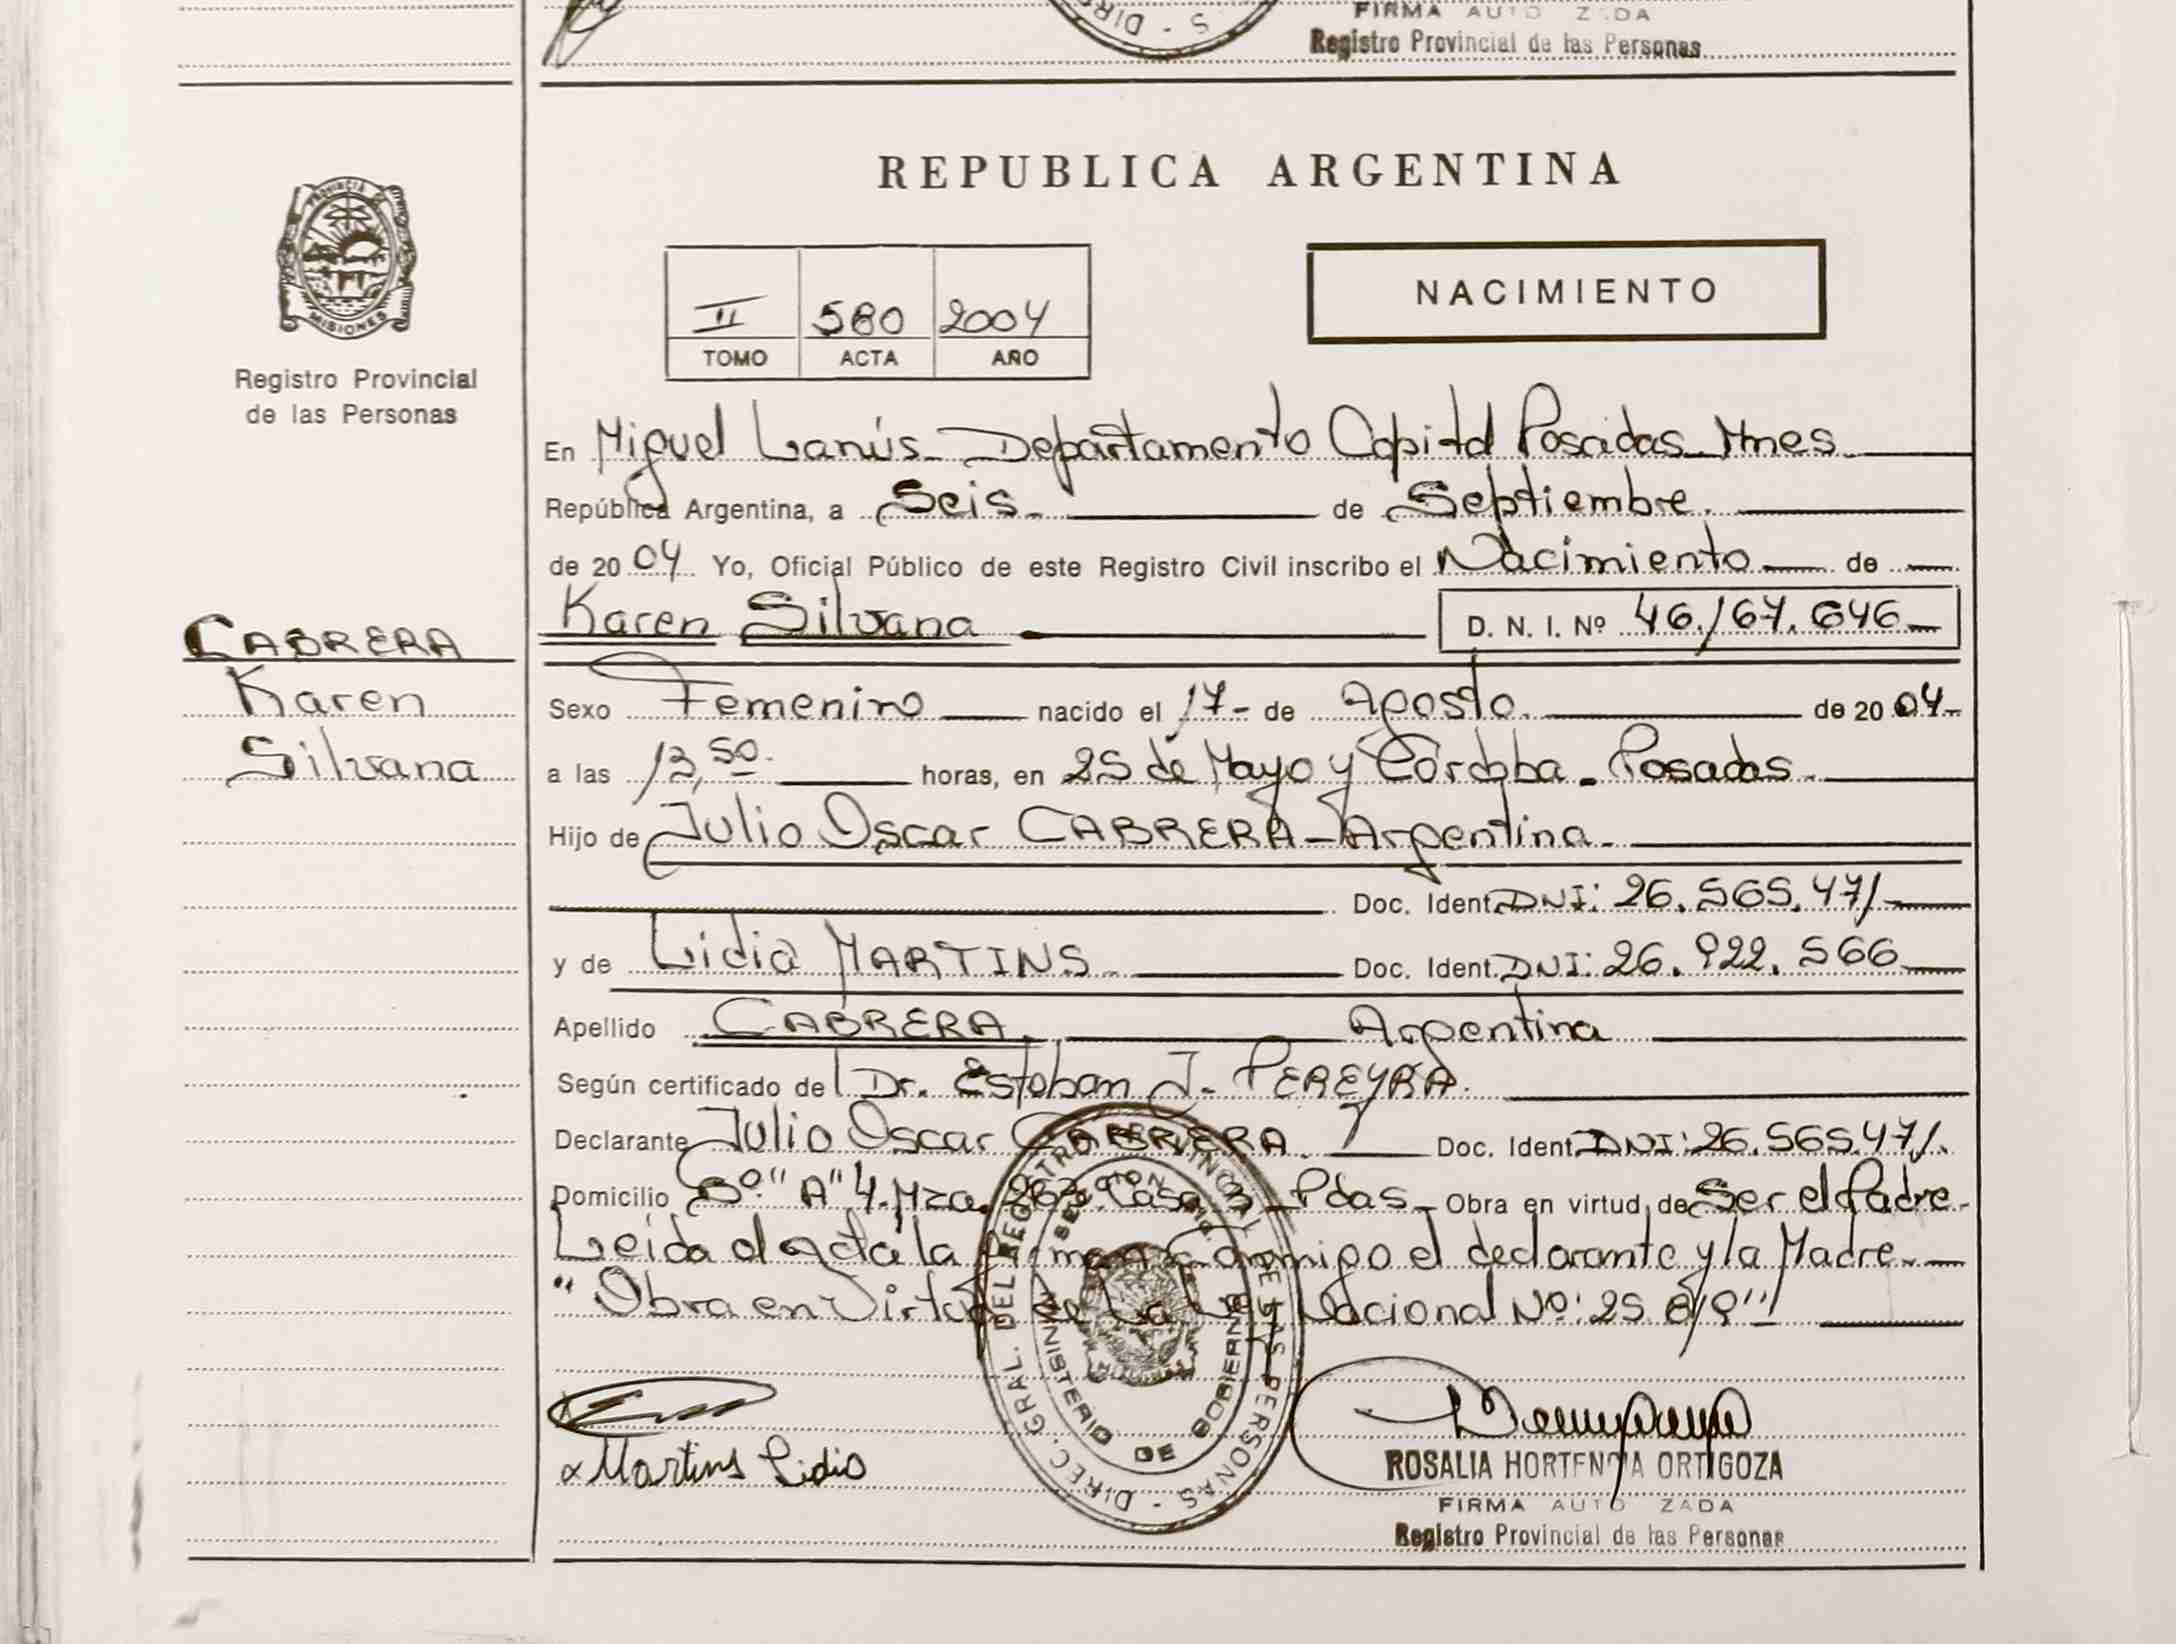 FIRMA AUTO ZADA
Registro Provincial de las Personas
PROVINCIA DE
MISIONES
Registro Provincial
de las Personas
REPUBLICA ARGENTINA
II 580 2004
TOMO ACTA AÑO
NACIMIENTO
En Miguel Lanús - Departamento Capital Posadas Mnes
República Argentina, a Seis de Septiembre.
de 2004 Yo, Oficial Público de este Registro Civil inscribo el Nacimiento de
Karen Silvana D. N. I. Nº 46.167.646
CABRERA
Karen
Silvana
Sexo Femenino nacido el 17 - de Agosto. de 2004
a las 13,50 horas, en 25 de Mayo y Córdoba - Posadas
Hijo de Julio Oscar CABRERA - Argentina.
Doc. Ident. DNI: 26.565.471
y de Lidia MARTINS Doc. Ident. DNI: 26.922.566
Apellido CABRERA Argentina
Según certificado de Dr. Esteban J. PEREYRA.
Declarante Julio Oscar CABRERA. Doc. Ident. DNI: 26.565.471.
Domicilio Bº "A" 4. Mza. Casa 3 - Pdas - Obra en virtud de Ser el Padre
Leida el acta la firman conmigo el declarante y la Madre.
"Obra en Virtud de La Ley Nacional Nº: 25.819"
DIREC. GRAL. DEL REGISTRO PROVINCIAL DE LAS PERSONAS
MINISTERIO DE GOBIERNO
Martins Lidia
ROSALIA HORTENCIA ORTIGOZA
FIRMA AUTO ZADA
Registro Provincial de las Personas